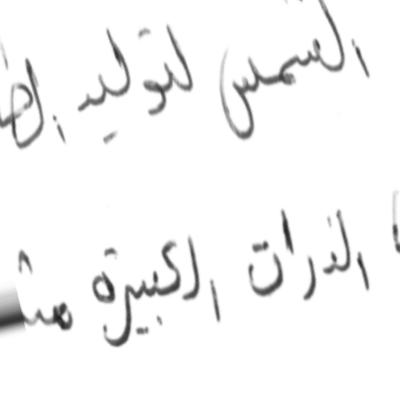 الشمس لتوليد
الذرات الكبيرة